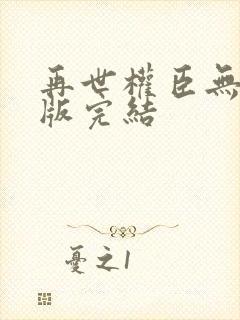 再世權臣無
版完結
憂之1